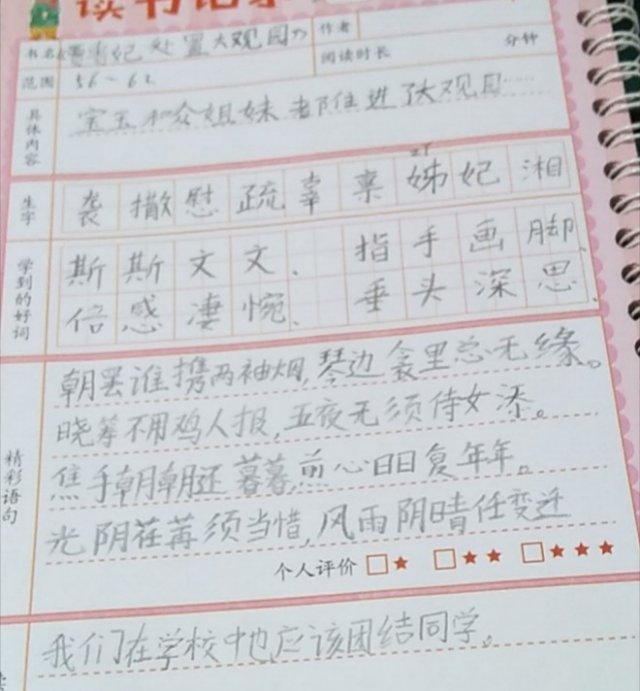 读书记录
书名《贾贵妃处置大观园》 作者
范围 56~62 阅读时长 分钟
具体内容 宝玉和众姐妹都住进了大观园……
生字 袭 撒 慰 疏 辜 禀 姊 妃 湘
学到的好词 斯斯文文、指手画脚、
倍感凄惋、垂头深思、
精彩语句
朝罢谁携两袖烟,琴边衾里总无缘。
晓筹不用鸡人报,五夜无须侍女添。
焦手朝朝还暮暮,煎心日日复年年。
光阴荏苒须当惜,风雨阴晴任变迁
个人评价 □★ □★★ □★★★
我们在学校中也应该团结同学。